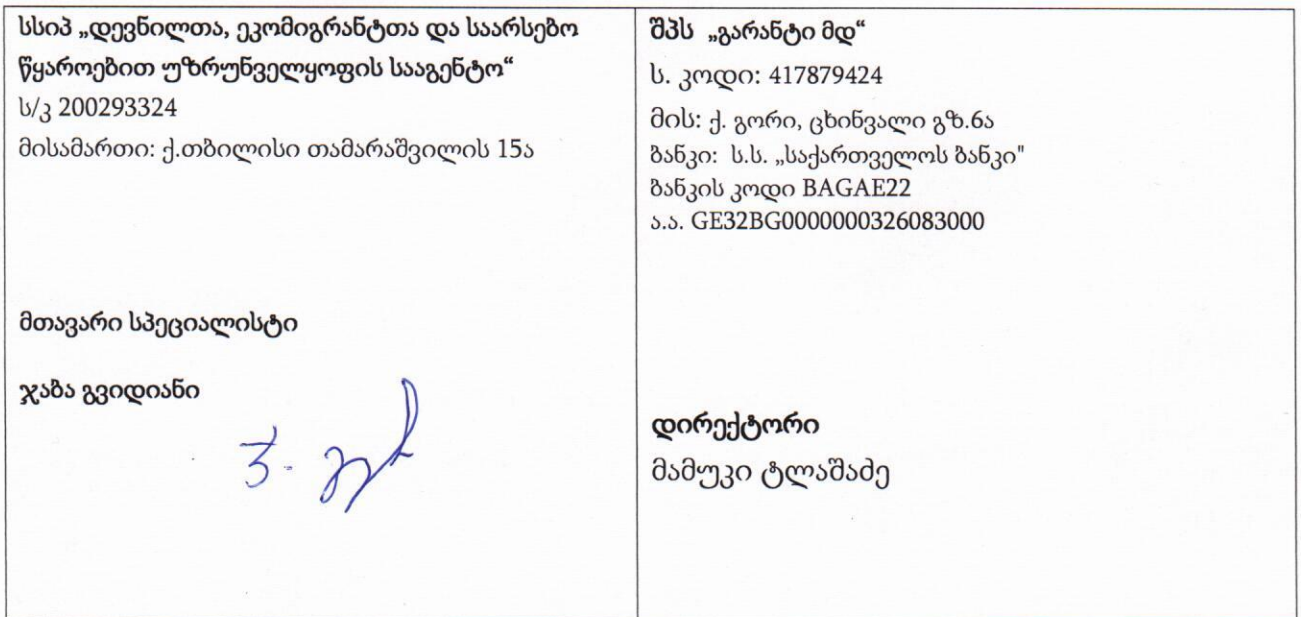 სსიპ „დევნილთა, ეკომიგრანტთა და საარსებო
წყაროებით უზრუნველყოფის სააგენტო“
ს/კ 200293324
მისამართი: ქ.თბილისი თამარაშვილის 15ა
მთავარი სპეციალისტი
ჯაბა გვიდიანი
შპს „გარანტი მდ“
ს. კოდი: 417879424
მის: ქ. გორი, ცხინვალი გზ.6ა
ბანკი: ს.ს. „საქართველოს ბანკი"
ბანკის კოდი BAGAE22
ა.ა. GE32BG0000000326083000
დირექტორი
მამუკი ტლაშაძე